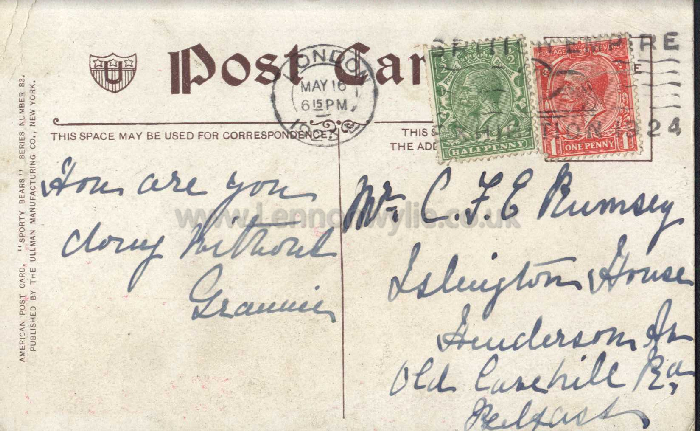 POST CARD
U
LONDON
MAY 16
6 15 PM
1924
BRITISH EMPIRE
EXHIBITION 1924
HALFPENNY
ONE PENNY
THIS SPACE MAY BE USED FOR CORRESPONDENCE.
THIS S
THE ADD
AMERICAN POST CARD. "SPORTY BEARS" SERIES NUMBER 83.
PUBLISHED BY THE ULLMAN MANUFACTURING CO., NEW YORK.
How are you
doing without
Grannie
Mr. C. F. E Rumsey
Islington House
Henderson Av
Old Cavehill Rd
Belfast
www.Lennonwylie.co.uk